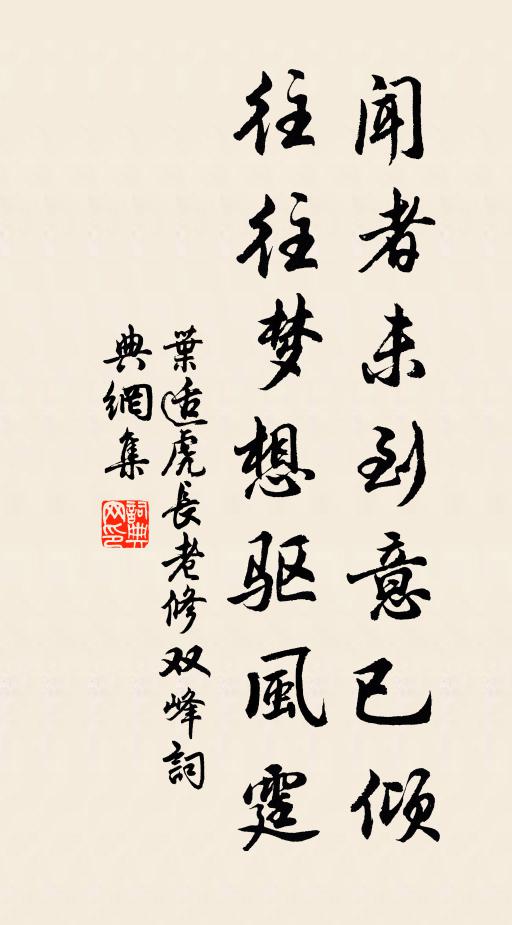 闻者未到意已倾
往往梦想驱風霆
葉适虎長老修双峰詞
典網集
詞典
网印